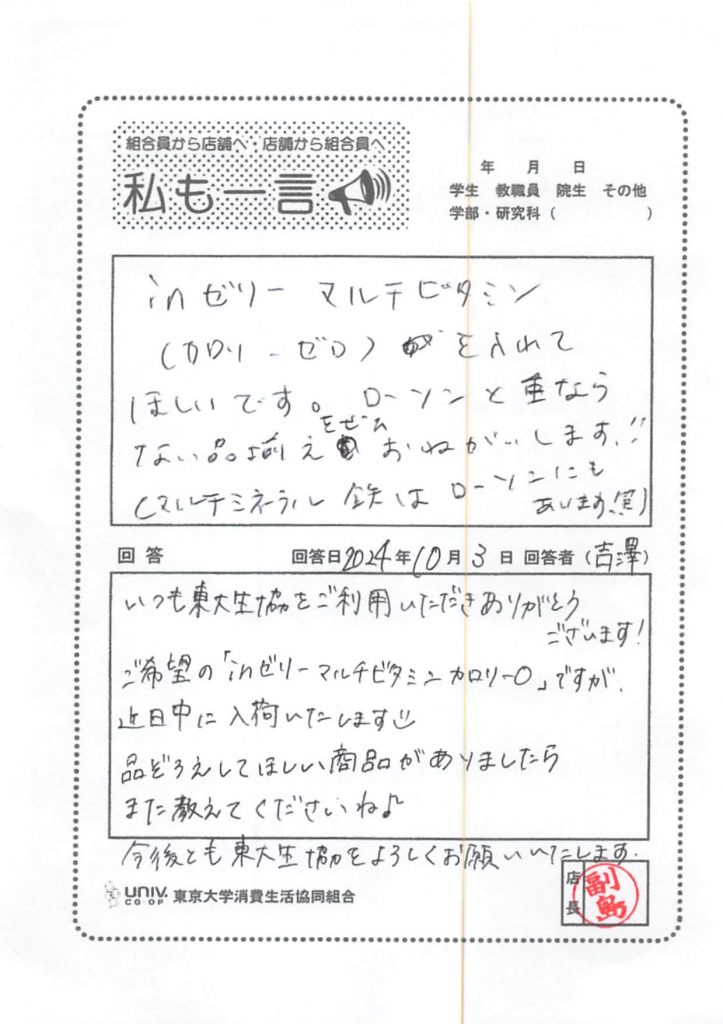 組合員から店舗へ・店舗から組合員へ
私も一言
年 月 日
学生 教職員 院生 その他
学部・研究科（ ）
inゼリー マルチビタミン
（カロリーゼロ）を入れて
ほしいです。ローソンと重なら
ない品揃えをぜひおねがいします!!
（マルチミネラル 鉄は ローソンにも
あいます（笑）
回答 回答日2024年10月3日 回答者（吉澤）
いつも東大生協をご利用いただきありがとう
ございます!
ご希望の「inゼリーマルチビタミンカロリー0」ですが、
近日中に入荷いたします
品ぞろえしてほしい商品がありましたら
また教えてくださいね♪
今後とも東大生協をよろしくお願いいたします.
UNIV. CO-OP 東京大学消費生活協同組合
店長 副島